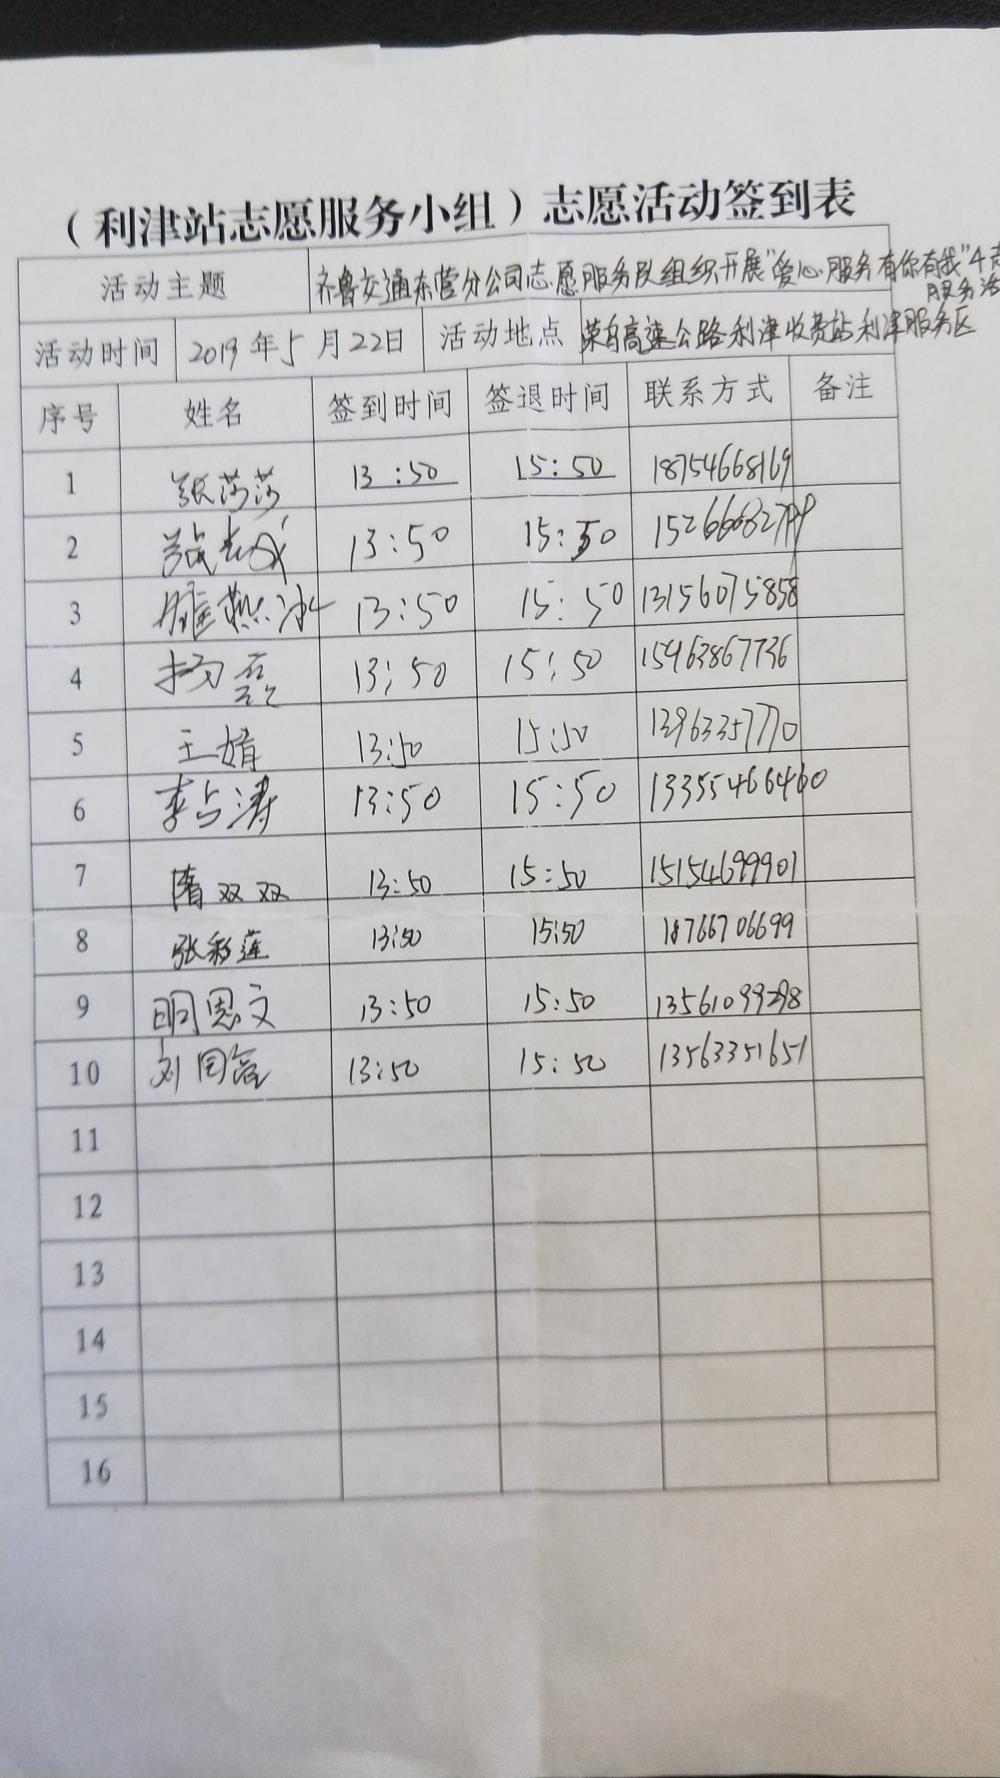 （利津站志愿服务小组）志愿活动签到表
活动主题 齐鲁交通东营分公司志愿服务队组织开展"爱心服务有你有我"
服务活
活动时间 2019年5月22日 活动地点 荣乌高速公路利津收费站利津服务区
序号 姓名 签到时间 签退时间 联系方式 备注
1 张莎莎 13:50 15:50 18754668169
2 13:50 15:50
3 13:50 15:50 13156075858
4 杨磊 13:50 15:50 15963867736
5 王婧 13:50 15:50 13963357770
6 李占涛 13:50 15:50 13355466460
7 隋双双 13:50 15:50 15154699901
8 张彩莲 13:50 15:50 18766706699
9 明恩文 13:50 15:50 13561099298
10 刘 13:50 15:50 13563351651
11
12
13
14
15
16